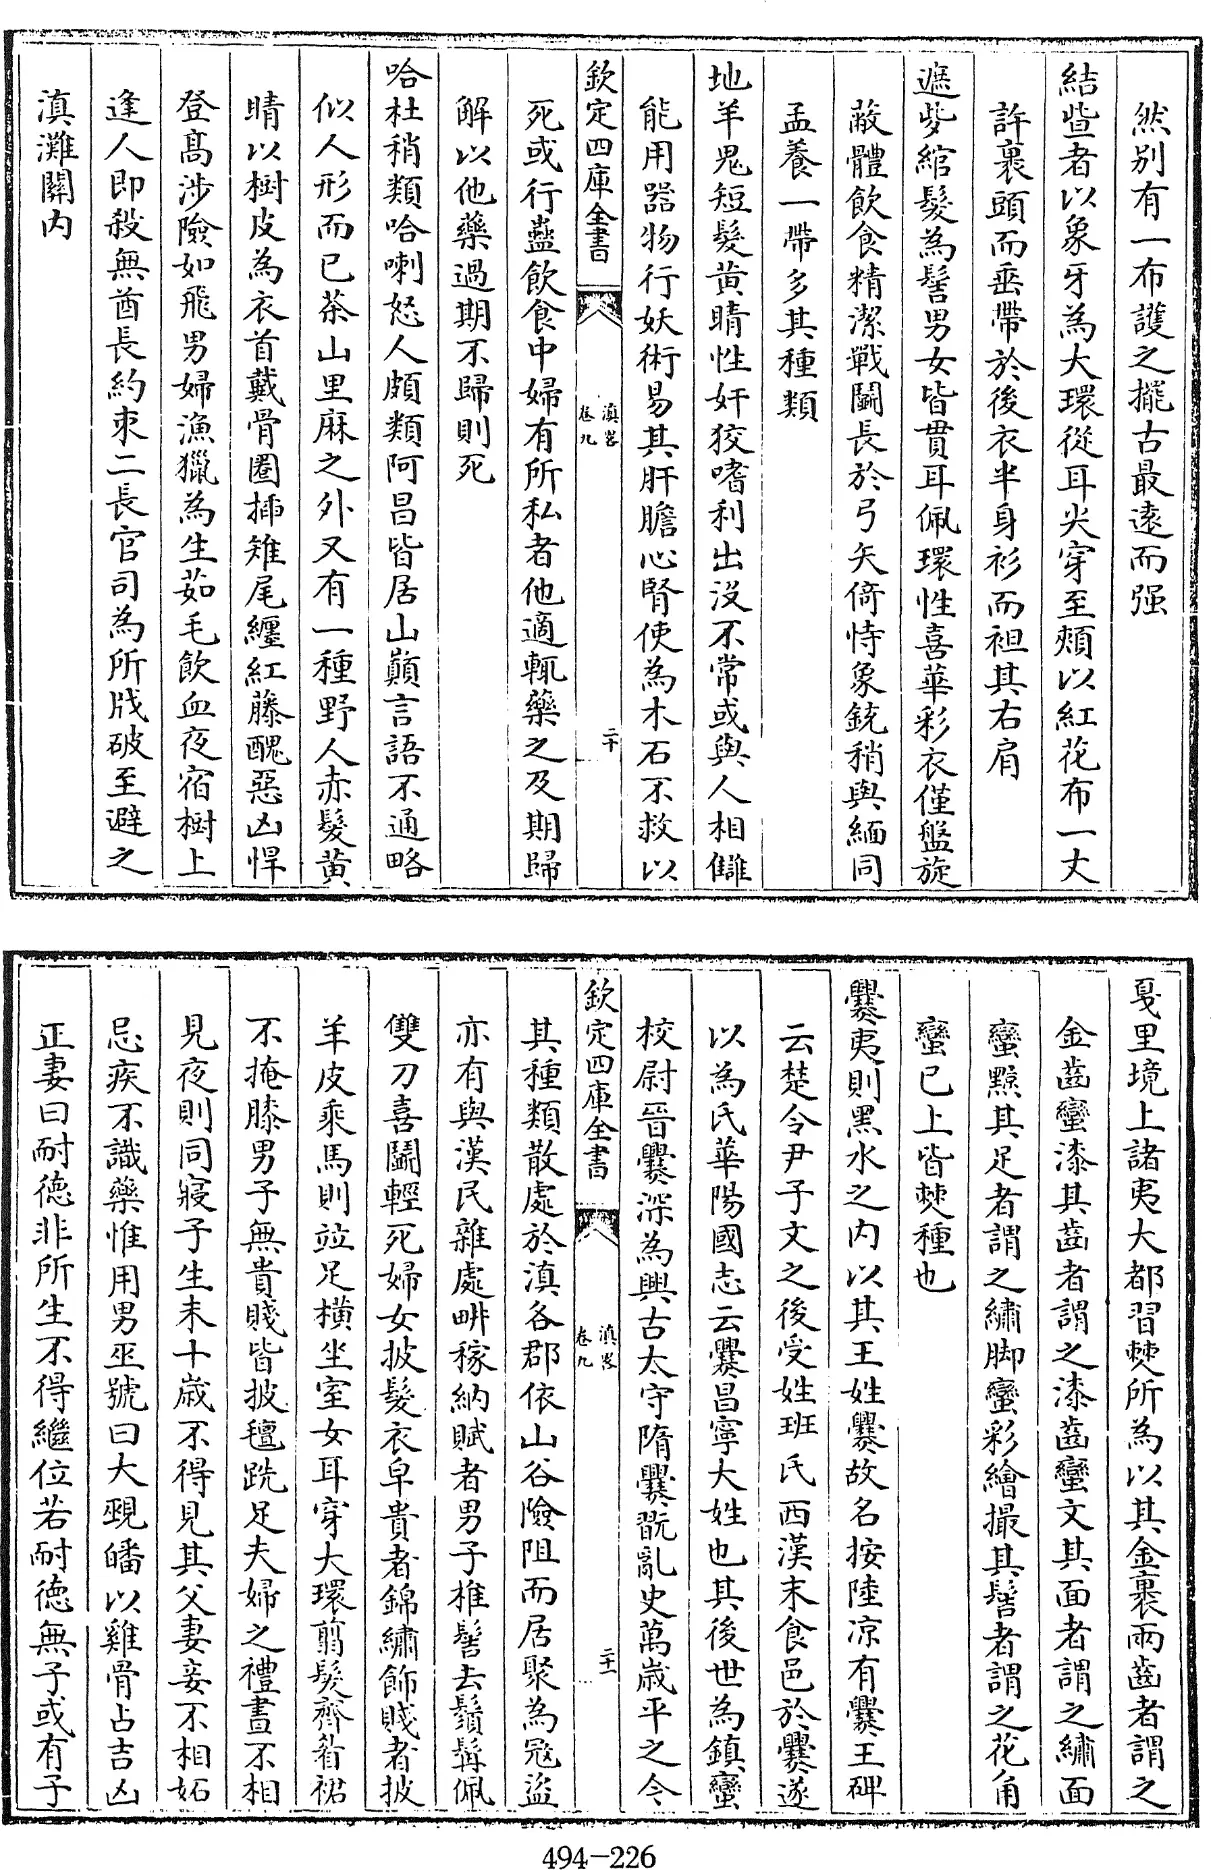 然别有一布護之擺古最遠而强
結些者以象牙為大環從耳尖穿至頰以紅花布一丈
許裹頭而垂帶於後衣半身衫而袒其右肩
遮些綰髮為髻男女皆貫耳佩環性喜華彩衣僅盤旋
蔽體飲食精潔戰鬭長於弓矢倚恃象銃稍與緬同
孟養一帶多其種類
地羊鬼短髮黄睛性奸狡嗜利出沒不常或與人相讎
能用器物行妖術易其肝膽心腎使為木石不救以
欽定四庫全書
滇畧
卷九
二十
死或行蠱飲食中婦有所私者他適輒藥之及期歸
解以他藥過期不歸則死
哈杜稍類哈喇怒人頗類阿昌皆居山巔言語不通略
似人形而已茶山里麻之外又有一種野人赤髮黄
睛以樹皮為衣首戴骨圈揷雉尾纒紅藤醜惡凶悍
登髙涉險如飛男婦漁獵為生茹毛飲血夜宿樹上
逢人即殺無酋長約束二長官司為所戕破至避之
滇灘關内
戛里境上諸夷大都習僰所為以其金裹兩齒者謂之
金齒蠻漆其齒者謂之漆齒蠻文其面者謂之繡面
蠻黥其足者謂之繡脚蠻彩繒撮其髻者謂之花角
蠻已上皆僰種也
爨夷則黑水之内以其王姓爨故名按陸凉有爨王碑
云楚令尹子文之後受姓班氏西漢末食邑於爨遂
以為氏華陽國志云爨昌寧大姓也其後世為鎮蠻
校尉晉爨深為興古太守隋爨翫亂史萬歳平之今
欽定四庫全書
滇畧
卷九
二十一
其種類散處於滇各郡依山谷險阻而居聚為冦盜
亦有與漢民雜處畊稼納賦者男子椎髻去鬚髯佩
雙刀喜鬭輕死婦女披髮衣皁貴者錦繡飾賤者披
羊皮乘馬則竝足横坐室女耳穿大環翦髮齊眉裙
不掩膝男子無貴賤皆披氊跣足夫婦之禮晝不相
見夜則同寢子生未十歳不得見其父妻妾不相妬
忌疾不識藥惟用男巫號曰大覡皤以雞骨占吉凶
正妻曰耐德非所生不得繼位若耐德無子或有子
494-226